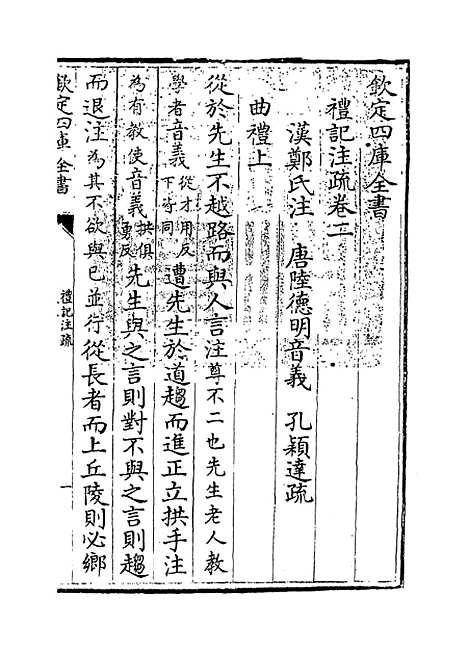 欽定四庫全書
禮記注疏卷二
漢鄭氏注 唐陸德明音義 孔穎達疏
曲禮上
從於先生不越路而與人言注尊不二也先生老人教
學者音義從才用反下皆同遭先生於道趨而進正立拱手注
為有教使音義拱俱勇反先生與之言則對不與之言則趨
而退注為其不欲與已並行從長者而上丘陵則必鄉
欽定四庫全書
禮記注疏
一